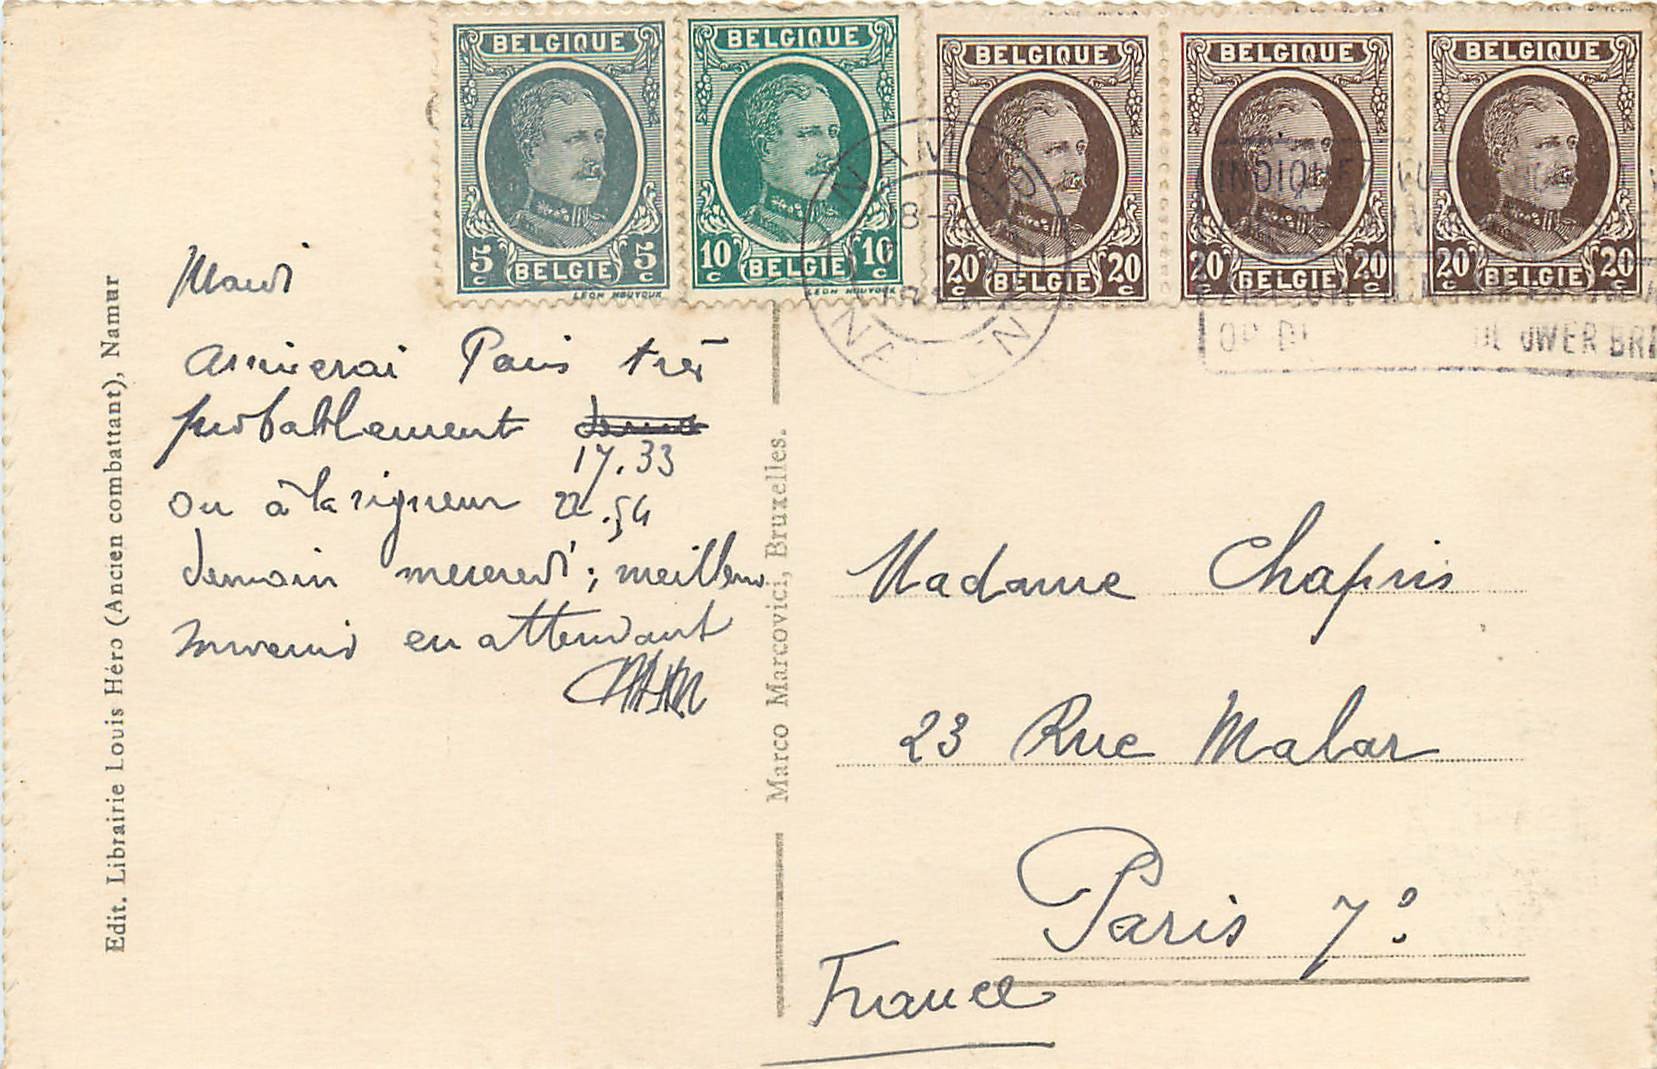 BELGIQUE
5c 5c
BELGIE
LEON HOUYOUX
BELGIQUE
10c 10c
BELGIE
LEON HOUYOUX
BELGIQUE
20c 20c
BELGIE
BELGIQUE
20c 20c
BELGIE
BELGIQUE
20c 20c
BELGIE
NAMUR
NAMEN
INDIQUEZ
OP
UWER
Edit. Librairie Louis Héro (Ancien combattant), Namur
Mardi
arriverai Paris très
probablement
17.33
ou à la rigueur 22.54
demain mercredi; meilleur
souvenir en attendant
Marco Marcovici, Bruxelles.
Madame Chapuis
23 Rue Malar
Paris 7e
France